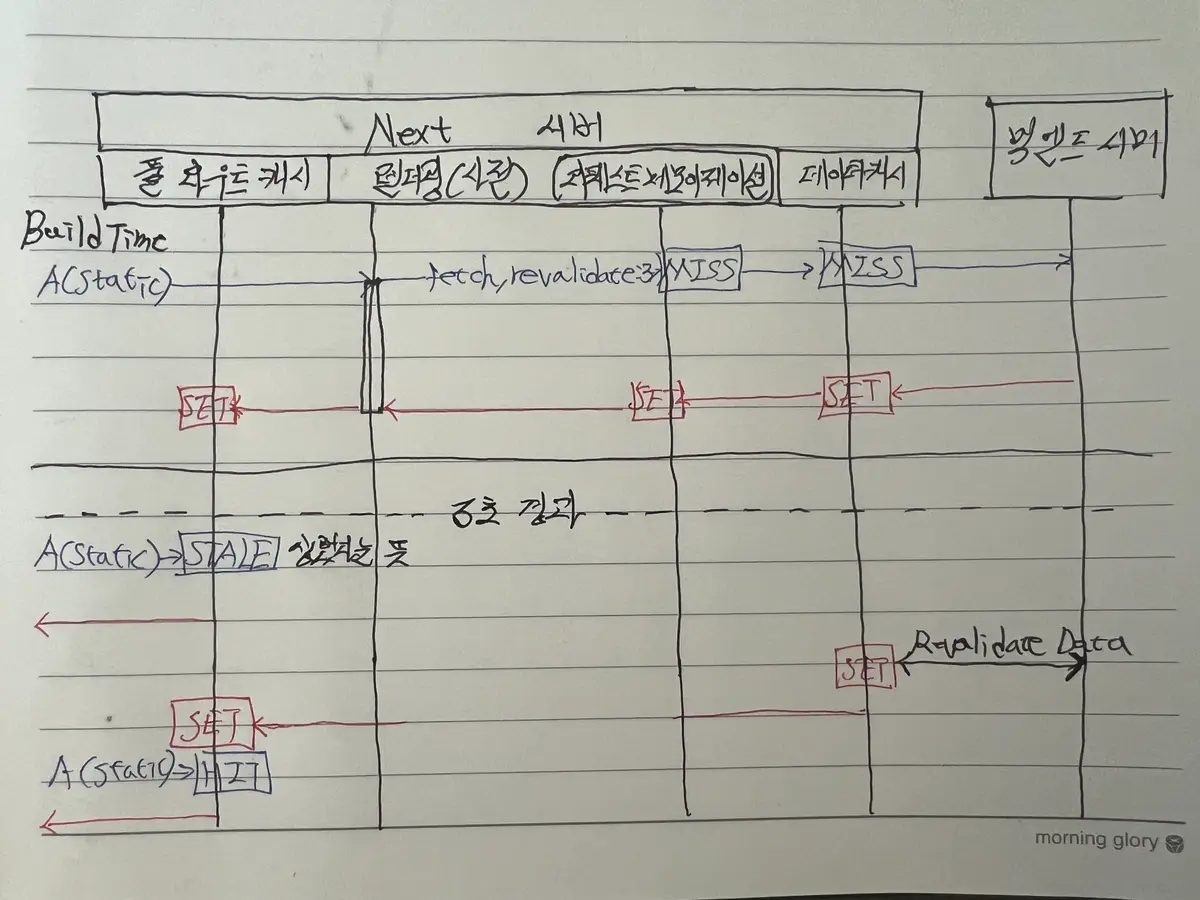 Next 서버
백엔드 서버
풀 라우트 캐시
렌더링(사전)
리퀘스트 메모이제이션
데이터캐시
Build Time
A(static)
fetch, revalidate:3
MISS
MISS
SET
SET
SET
3초 경과
A(static)
STALE
상했다는 뜻
Revalidate Data
SET
SET
A(static)
HIT
morning glory